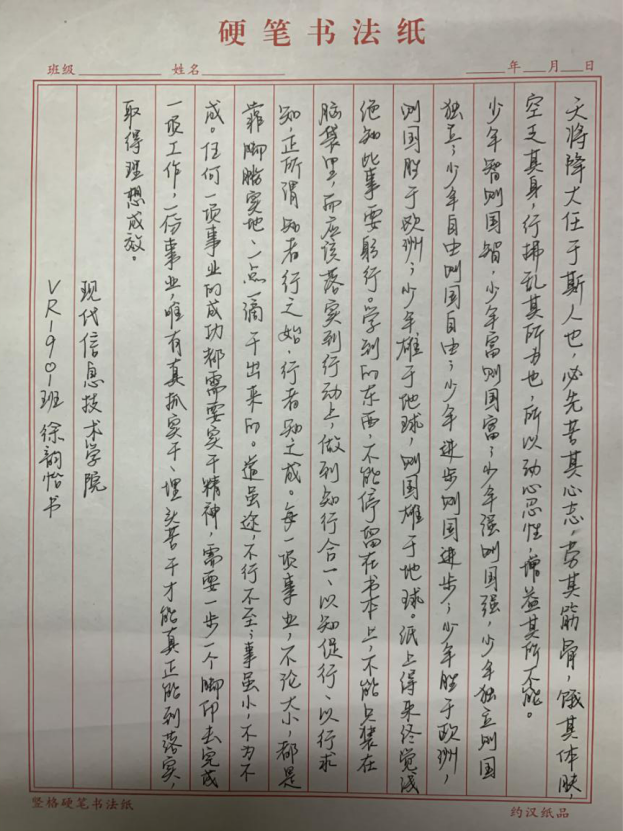 硬笔书法纸
班级 姓名 年 月 日
天将降大任于斯人也，必先苦其心志，劳其筋骨，饿其体肤，
空乏其身，行拂乱其所为也，所以动心忍性，增益其所不能。
少年智则国智，少年富则国富；少年强则国强，少年独立则国
独立；少年自由则国自由；少年进步则国进步；少年胜于欧洲，
则国胜于欧洲；少年雄于地球，则国雄于地球。纸上得来终觉浅
绝知此事要躬行。学到的东西，不能停留在书本上，不能只装在
脑袋里，而应该落实到行动上，做到知行合一、以知促行、以行求
知，正所谓知者行之始，行者知之成。每一项事业，不论大小，都是
靠脚踏实地、一点一滴干出来的。道虽迩，不行不至；事虽小，不为不
成。任何一项事业的成功都需要实干精神，需要一步一个脚印去完成
一项工作，一份事业，唯有真抓实干、埋头苦干才能真正能到落实，
取得理想成效。
现代信息技术学院
VR1901班 徐韵怡书
竖格硬笔书法纸
约汉纸品